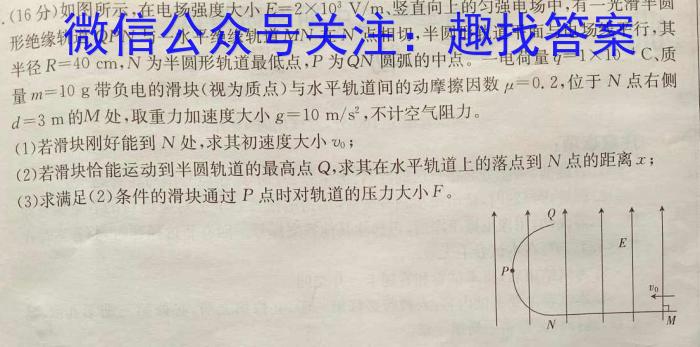 .(16分)如图所示,在电场强度大小E=2×10³ V/m、竖直向上的匀强电场中,有一光滑半圆
微信公众号关注:趣找答案
形绝缘轨道QPN与一水平绝缘轨道MN在N点相切,半圆形轨道平面与电场线平行,其
半径R=40 cm,N为半圆形轨道最低点,P为QN圆弧的中点。一电荷量q=1×10 C、质
量m=10 g带负电的滑块(视为质点)与水平轨道间的动摩擦因数μ=0.2,位于N点右侧
d=3 m的M处,取重力加速度大小g=10 m/s²,不计空气阻力。
(1)若滑块刚好能到N处,求其初速度大小v₀;
(2)若滑块恰能运动到半圆轨道的最高点Q,求其在水平轨道上的落点到N点的距离x;
(3)求满足(2)条件的滑块通过P点时对轨道的压力大小F。
Q
E
P
v₀
N
M